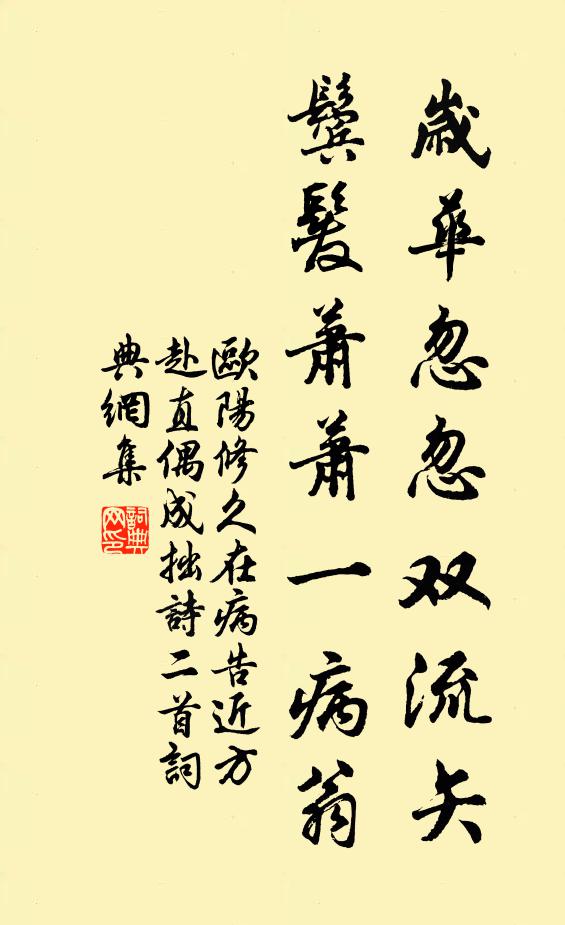 歲華忽忽双流矢
鬢髮蕭蕭一病翁
歐陽修久在病告近方
赴直偶成拙詩二首詞
典網集
詞典网印